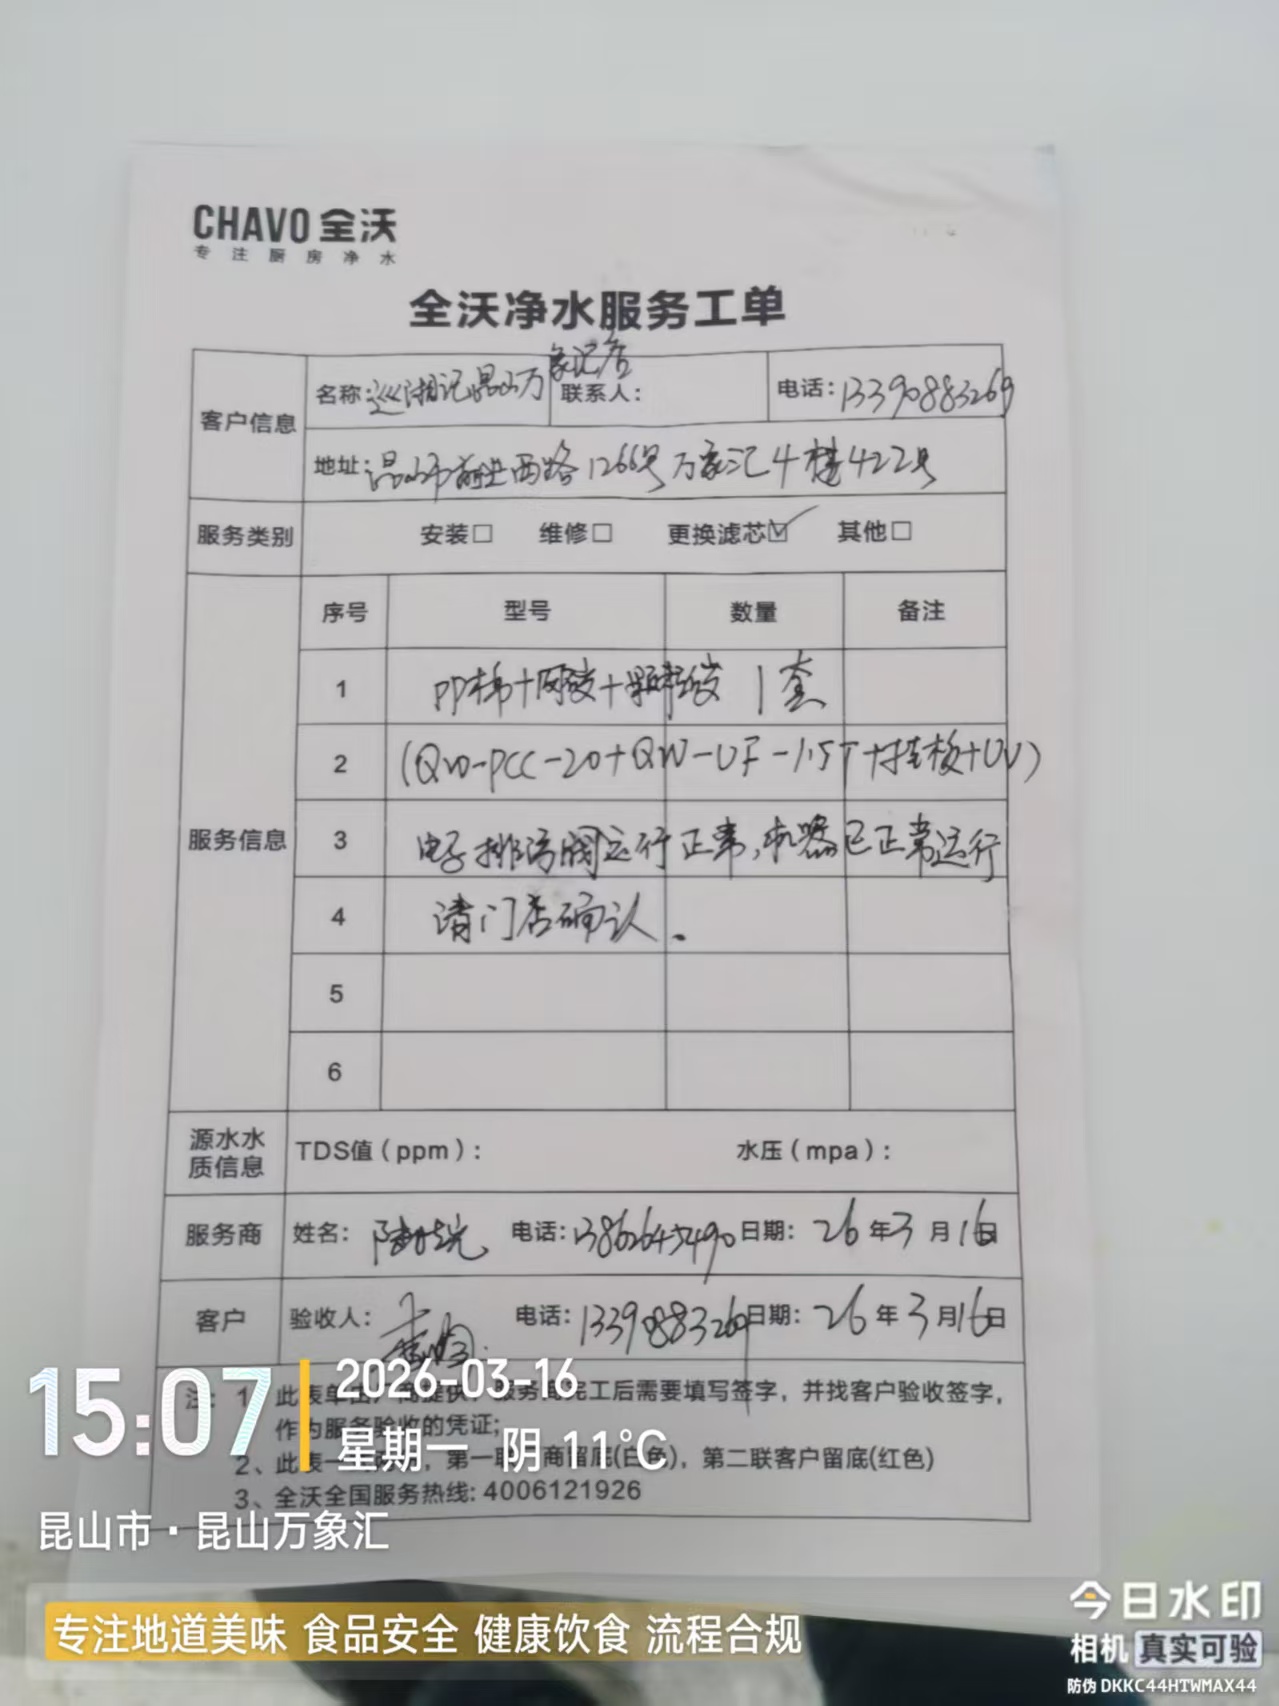 CHAVO 全沃
专注厨房净水
全沃净水服务工单
客户信息
名称:巡湘记昆山万象汇店 联系人: 电话:13390883269
地址:昆山市前进西路1266号万象汇4楼422号
服务类别 安装□ 维修□ 更换滤芯☑ 其他□
服务信息
序号 型号 数量 备注
1 PP棉+阿碳+颗粒碳 1套
2 (QW-PCC-20+QW-UF-1.5T+挂板+UV)
3 电子排污阀运行正常,机器已正常运行
4 请门店确认.
5
6
源水水质信息 TDS值(ppm): 水压(mpa):
服务商 姓名: 电话: 日期: 26年3月16日
客户 验收人: 电话:13390883269 日期: 26年3月16日
注: 1、此表单由厂商提供,服务商完工后需要填写签字,并找客户验收签字,
作为服务验收的凭证;
2、此表一, 第一联商留底(白色),第二联客户留底(红色)
3、全沃全国服务热线: 4006121926
15:07
2026-03-16
星期一 阴 11°C
昆山市·昆山万象汇
专注地道美味 食品安全 健康饮食 流程合规
今日水印
相机 真实可验
防伪 DKKC44HTWMAX44